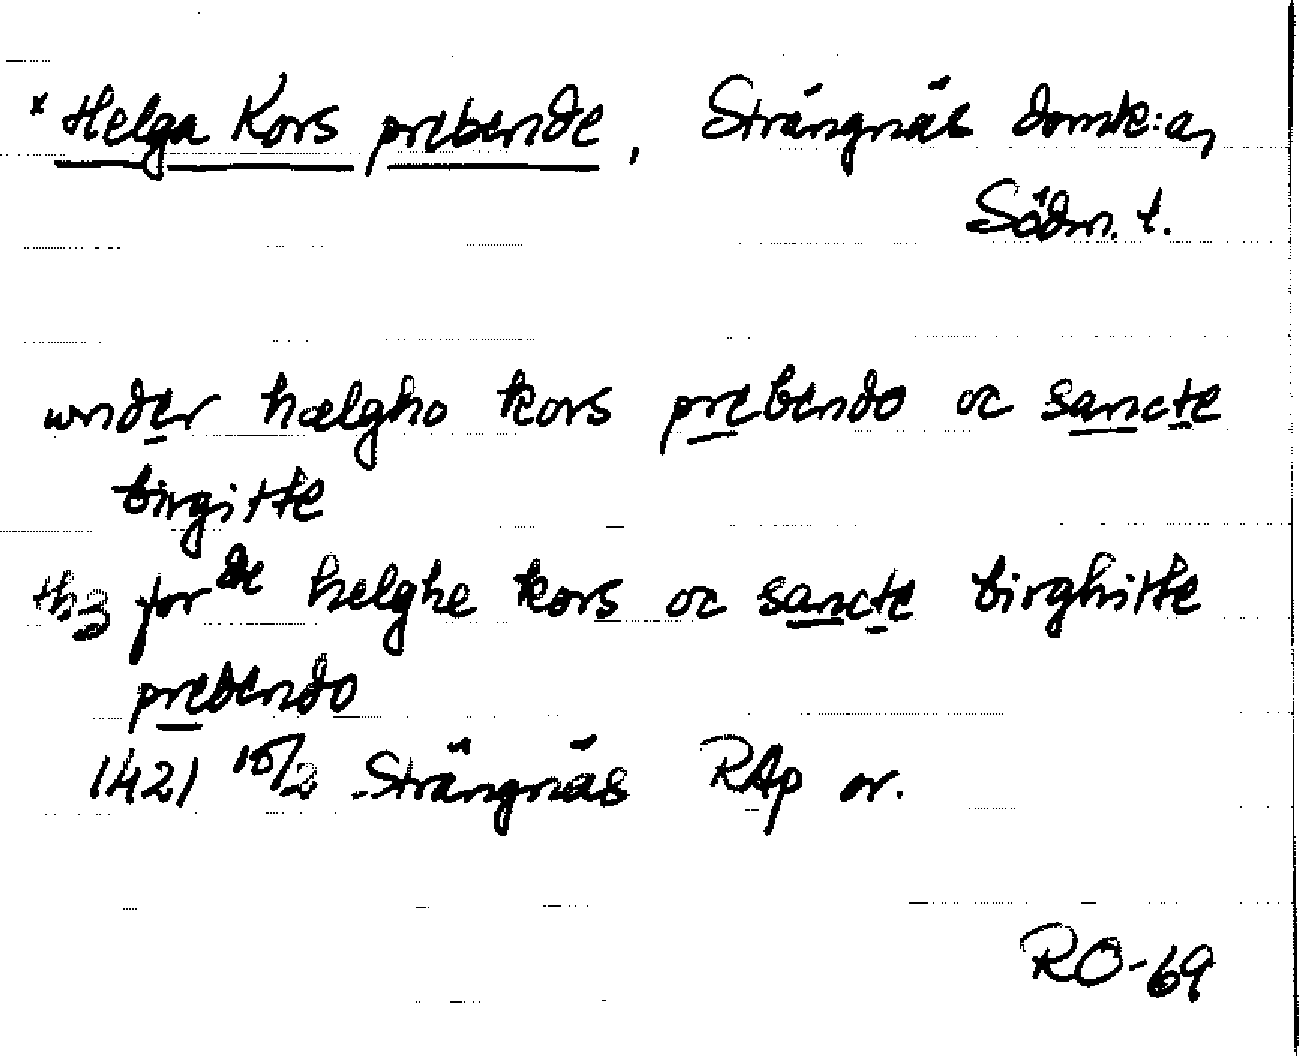 * Helga Kors prebende, Strängnäs domk:a,
Södm. t.
wnder hælgho kors prebendo oc sancte
birgitte
thz forde helghe kors oc sancte birghitte
prebendo
1421 15/2 Strängnäs RAp or.
RO-69